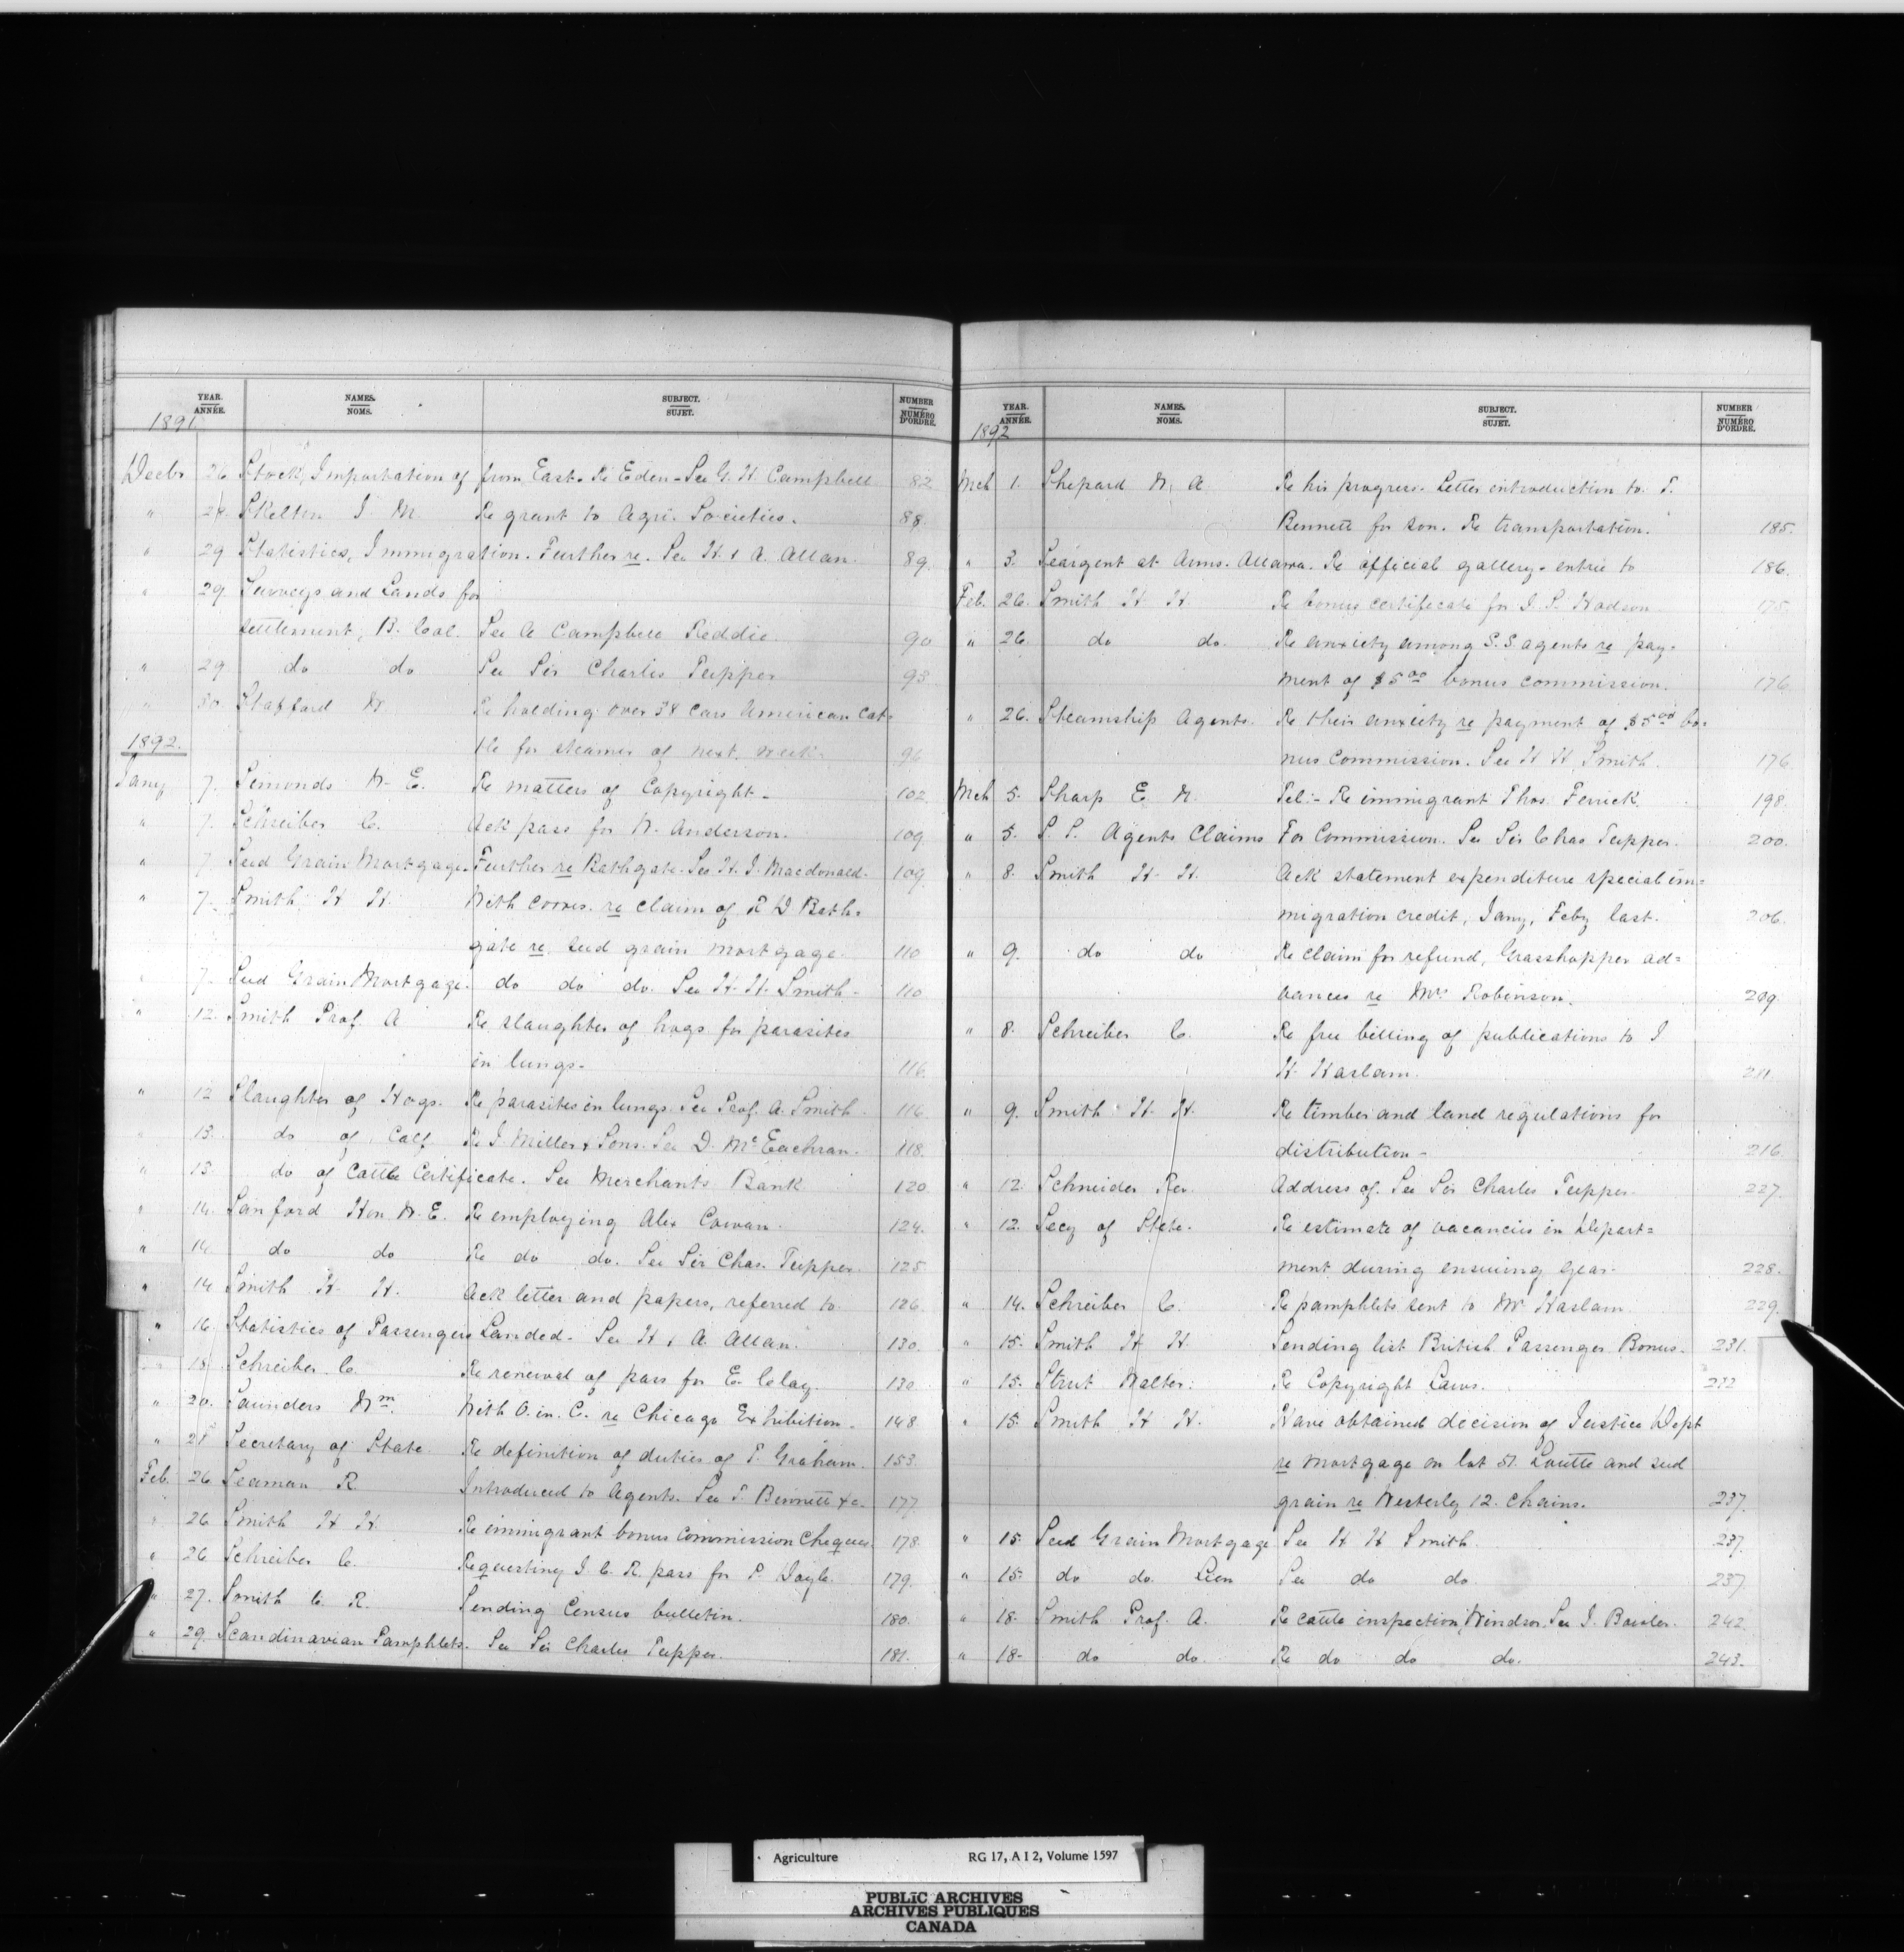 YEAR. ANNÉE. NAMES. NOMS. SUBJECT. SUJET. NUMBER NUMÉRO D'ORDRE.
1891
Decbr 26 Stock, Importation of from East. Re Eden - See G. H. Campbell 82
" 28. Skelton J. M. Re grant to Agri. Societies. 88.
" 29 Statistics, Immigration. Further re. See H. & A. Allan. 89.
" 29 Surveys and Lands for
settlement, B. Col. See A Campbell Reddie. 90
" 29 do do See Sir Charles Tupper 93
" 30. Stafford W Re holding over 38 cars American Cat=
1892. tle for steamer of next week. 96
Jany 7. Simonds W. E. Re matters of Copyright - 102
" 7. Schreiber C. Ack pass for W. Anderson. 109
" 7 Seed Grain Mortgage. Further re Bathgate. See H. J. Macdonald. 109.
" 7. Smith H H. With corres. re claim of R D Bath=
gate re. seed grain mortgage. 110
" 7. Seed Grain Mortgage. do do do. See H. H. Smith - 110
" 12. Smith Prof. A Re slaughter of hogs for parasites
in lungs - 116.
" 12 Slaughter of Hogs. Re parasites in lungs. See Prof. A. Smith. 116.
" 13. do of Calf Re J. Miller & Sons. See D. McEachran. 118.
" 13 do of Cattle Certificate. See Merchants Bank 120
" 14. Sanford Hon W. E. Re employing Alex Cowan. 124.
" 14. do do Re do do. See Sir Chas. Tupper. 125
" 14 Smith H. H. Ack letter and papers, referred to. 126.
" 16. Statistics of Passengers Landed - See H & A. Allan. 130.
" 18. Schreiber C. Re renewal of pass for E. Clay. 130
" 20. Saunders Wm. With O. in. C. re Chicago Exhibition - 148
" 21 Secretary of State. Re definition of duties of P. Graham. 153.
Feb. 26 Seaman R. Introduced to Agents. See T. Bennett &c. 177.
" 26 Smith H H. Re immigrant bonus commission Cheques. 178.
" 26 Schreiber C. Requesting I. C. R. pass for P. Doyle. 179.
" 27. Smith C. R. Sending Census bulletin. 180.
" 29. Scandinavian Pamphlets. See Sir Charles Tupper. 181.
YEAR. ANNÉE. NAMES. NOMS. SUBJECT. SUJET. NUMBER NUMÉRO D'ORDRE.
1892
Mch 1. Shepard W. A Re his progress. Letter introduction to T.
Bennett for son. Re transportation. 185.
" 3. Seargent at Arms. Ottawa. Re official gallery - entrie to 186.
Feb. 26. Smith H H. Re bonus certificate for J. S. Hodson 175.
" 26 do do. Re anxiety among S. S agents re pay=
ment of $5 00 bonus commission. 176
" 26. Steamship Agents. Re their anxiety re payment of $5 00 bo=
nus commission. See H H Smith. 176
Mch 5. Sharp E. W. Tel:- Re immigrant Thos. Fenick. 198.
" 5. S S. Agents Claims For Commission. See Sir Chas Tupper. 200.
" 8. Smith H. H. Ack statement expenditure special im=
migration credit, Jany, Feby last. 206.
" 9. do do Re claim for refund, Grasshopper ad=
vances re Mrs Robinson. 209.
" 8. Schreiber C. Re free billing of publications to J
H. Haslam. 211.
" 9. Smith H. H. Re timber and land regulations for
distribution - 216
" 12. Schneider Rev. Address of. See Sir Charles Tupper. 227.
" 12. Secy of State. Re estimate of vacancies in Depart=
ment during ensuing year. 228.
" 14. Schreiber C. Re pamphlets sent to Mr Haslam 229.
" 15. Smith H H. Sending list British Passenger Bonus. 231.
" 15. Strut Walter. Re Copyright Laws. 232
" 15. Smith H H. Have obtained decision of Justice Dept
re mortgage on lot 51. Loutte and seed
grain re Westerly 12. Chains. 237.
" 15 Seed Grain Mortgage See H H Smith. 237.
" 15. do do. Lien See do do. 237
" 18. Smith Prof. A. Re cattle inspection Windsor. See J. Bowler. 242.
" 18. do do. Re do do do. 243.
Agriculture RG 17, A I 2, Volume 1597
PUBLIC ARCHIVES
ARCHIVES PUBLIQUES
CANADA